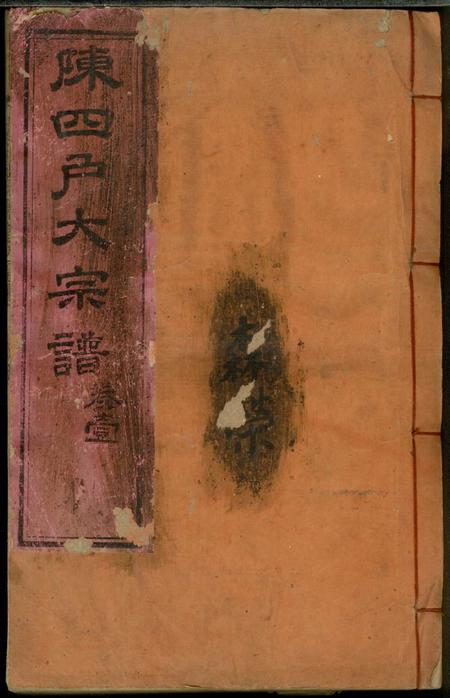 陳四户大宗譜
卷壹